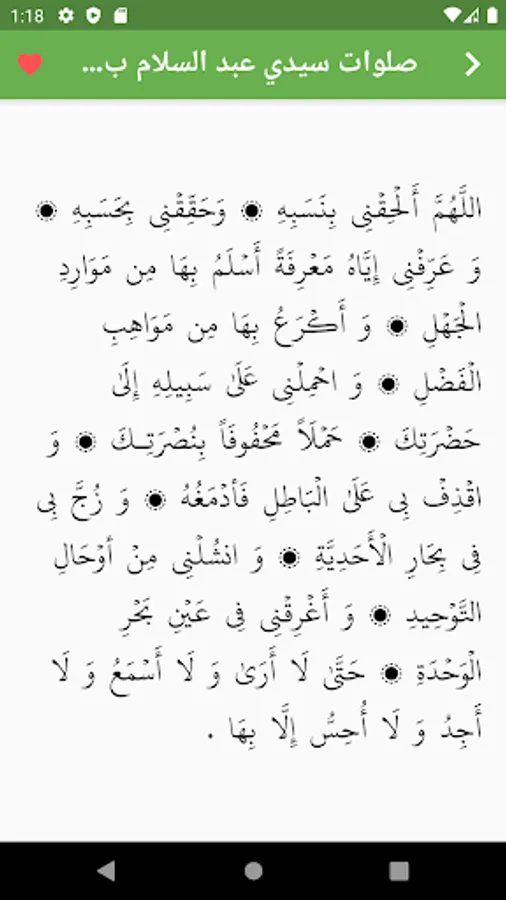 1:18
صلوات سيدي عبد السلام ب...
اللَّهُمَّ أَلْحِقْنِى بِنَسَبِهِ ۞ وَحَقِّقْنِى بِحَسَبِهِ ۞
وَ عَرِّفْنِى إِيَّاهُ مَعْرِفَةً أَسْلَمُ بِهَا مِن مَوَارِدِ
الْجَهْلِ ۞ وَ أَكْرَعُ بِهَا مِن مَوَاهِبِ
الْفَضْلِ ۞ وَ احْمِلْنِى عَلَىٰ سَبِيلِهِ إِلَىٰ
حَضْرَتِكَ ۞ حَمْلَاً مَحْفُوفَاً بِنُصْرَتِـكَ ۞ وَ
اقْذِفْ بِى عَلَىٰ الْبَاطِلِ فَأدْمَغُهُ ۞ وَ زُجَّ بِى
فِى بِحَارِ الْأَحَدِيَّةِ ۞ وَ انشُلْنِى مِنْ أوْحَالِ
التَّوْحِيدِ ۞ وَ أَغْرِقْنِى فِى عَيْنِ بَحْرِ
الْوَحْدَةِ ۞ حَتَّىٰ لَا أَرَىٰ وَ لَا أَسْمَعُ وَ لَا
أَجِدُ وَ لَا أُحِسُّ إِلَّا بِهَا .